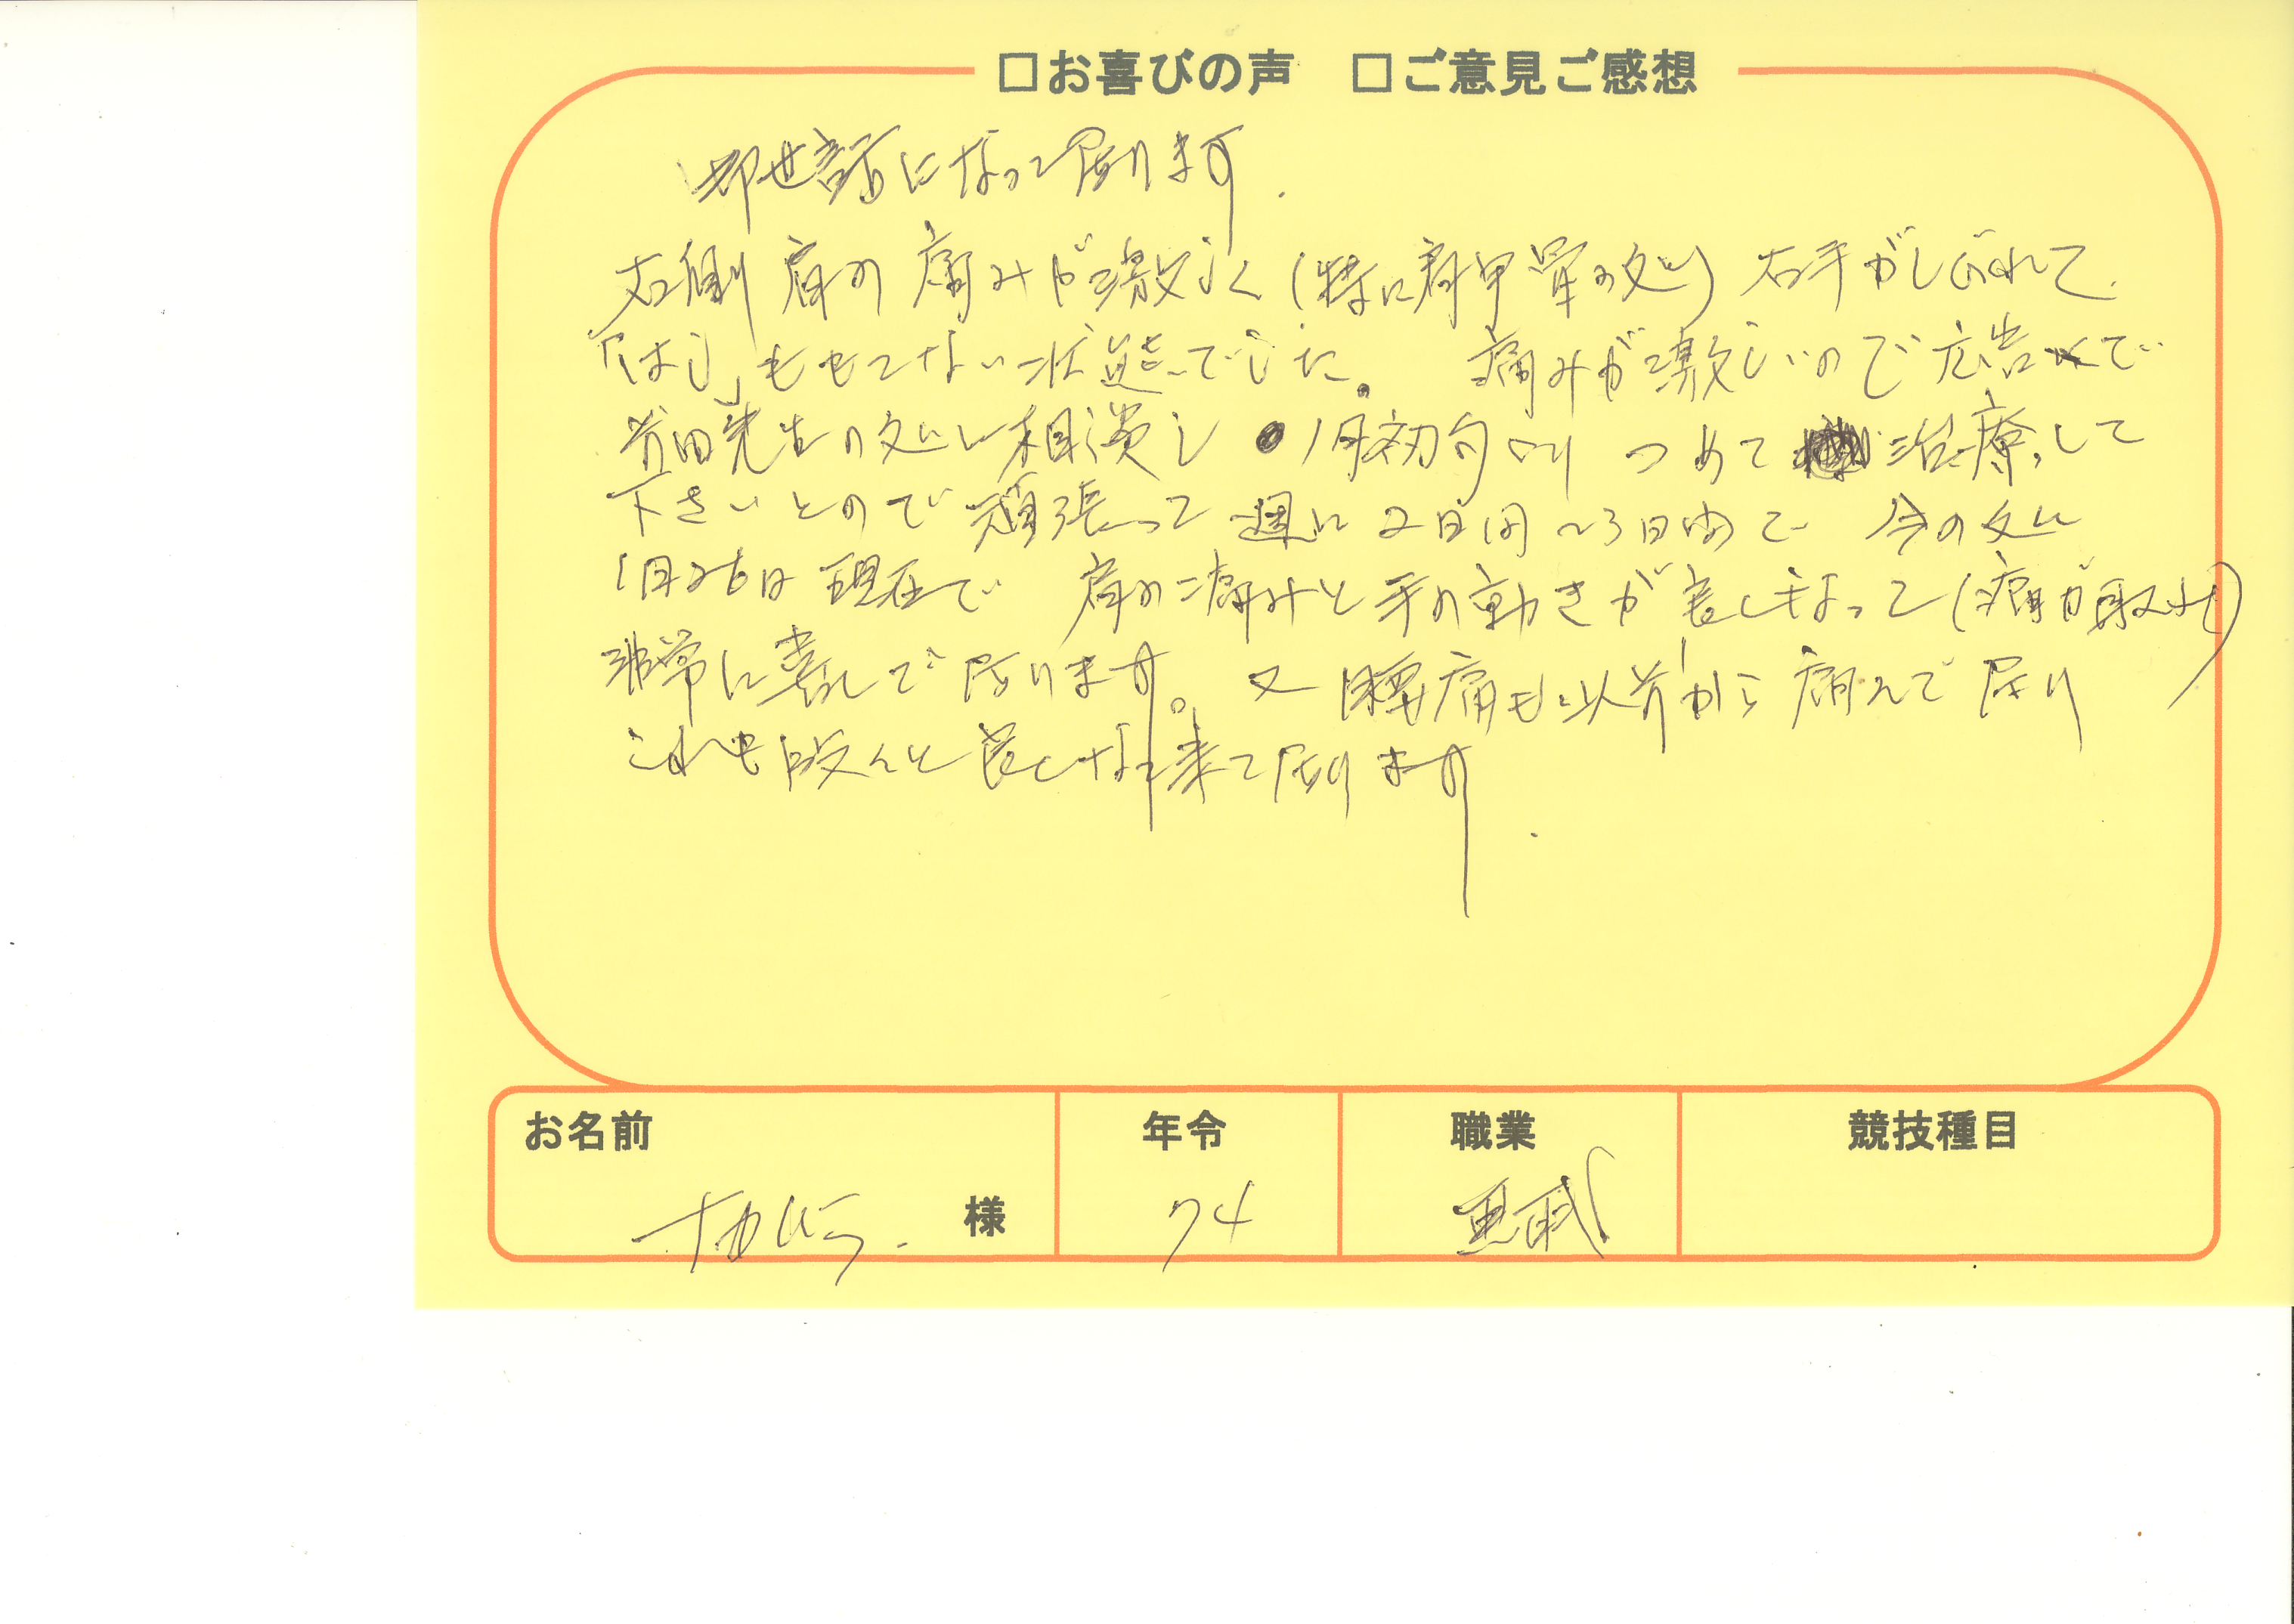 □お喜びの声 □ご意見ご感想
御世話になって居ります.
右側 肩の 痛みが激しく (特に肩甲骨の処) 右手がしびれて
「はし」ももてない状態でした。 痛みが激しいので広告で
前田先生の処に相談し 1月初旬より つめて 治療して
下さいとので頑張って 週に 2日間〜3日間で 今の処に
1月26日現在で 肩の痛みと手の動きが良くなって(痛が取れ)
非常に喜んで居ります。又 腰痛も以前から痛んで居り
これも段々と良くなって来て居ります.
お名前 年令 職業 競技種目
様 74